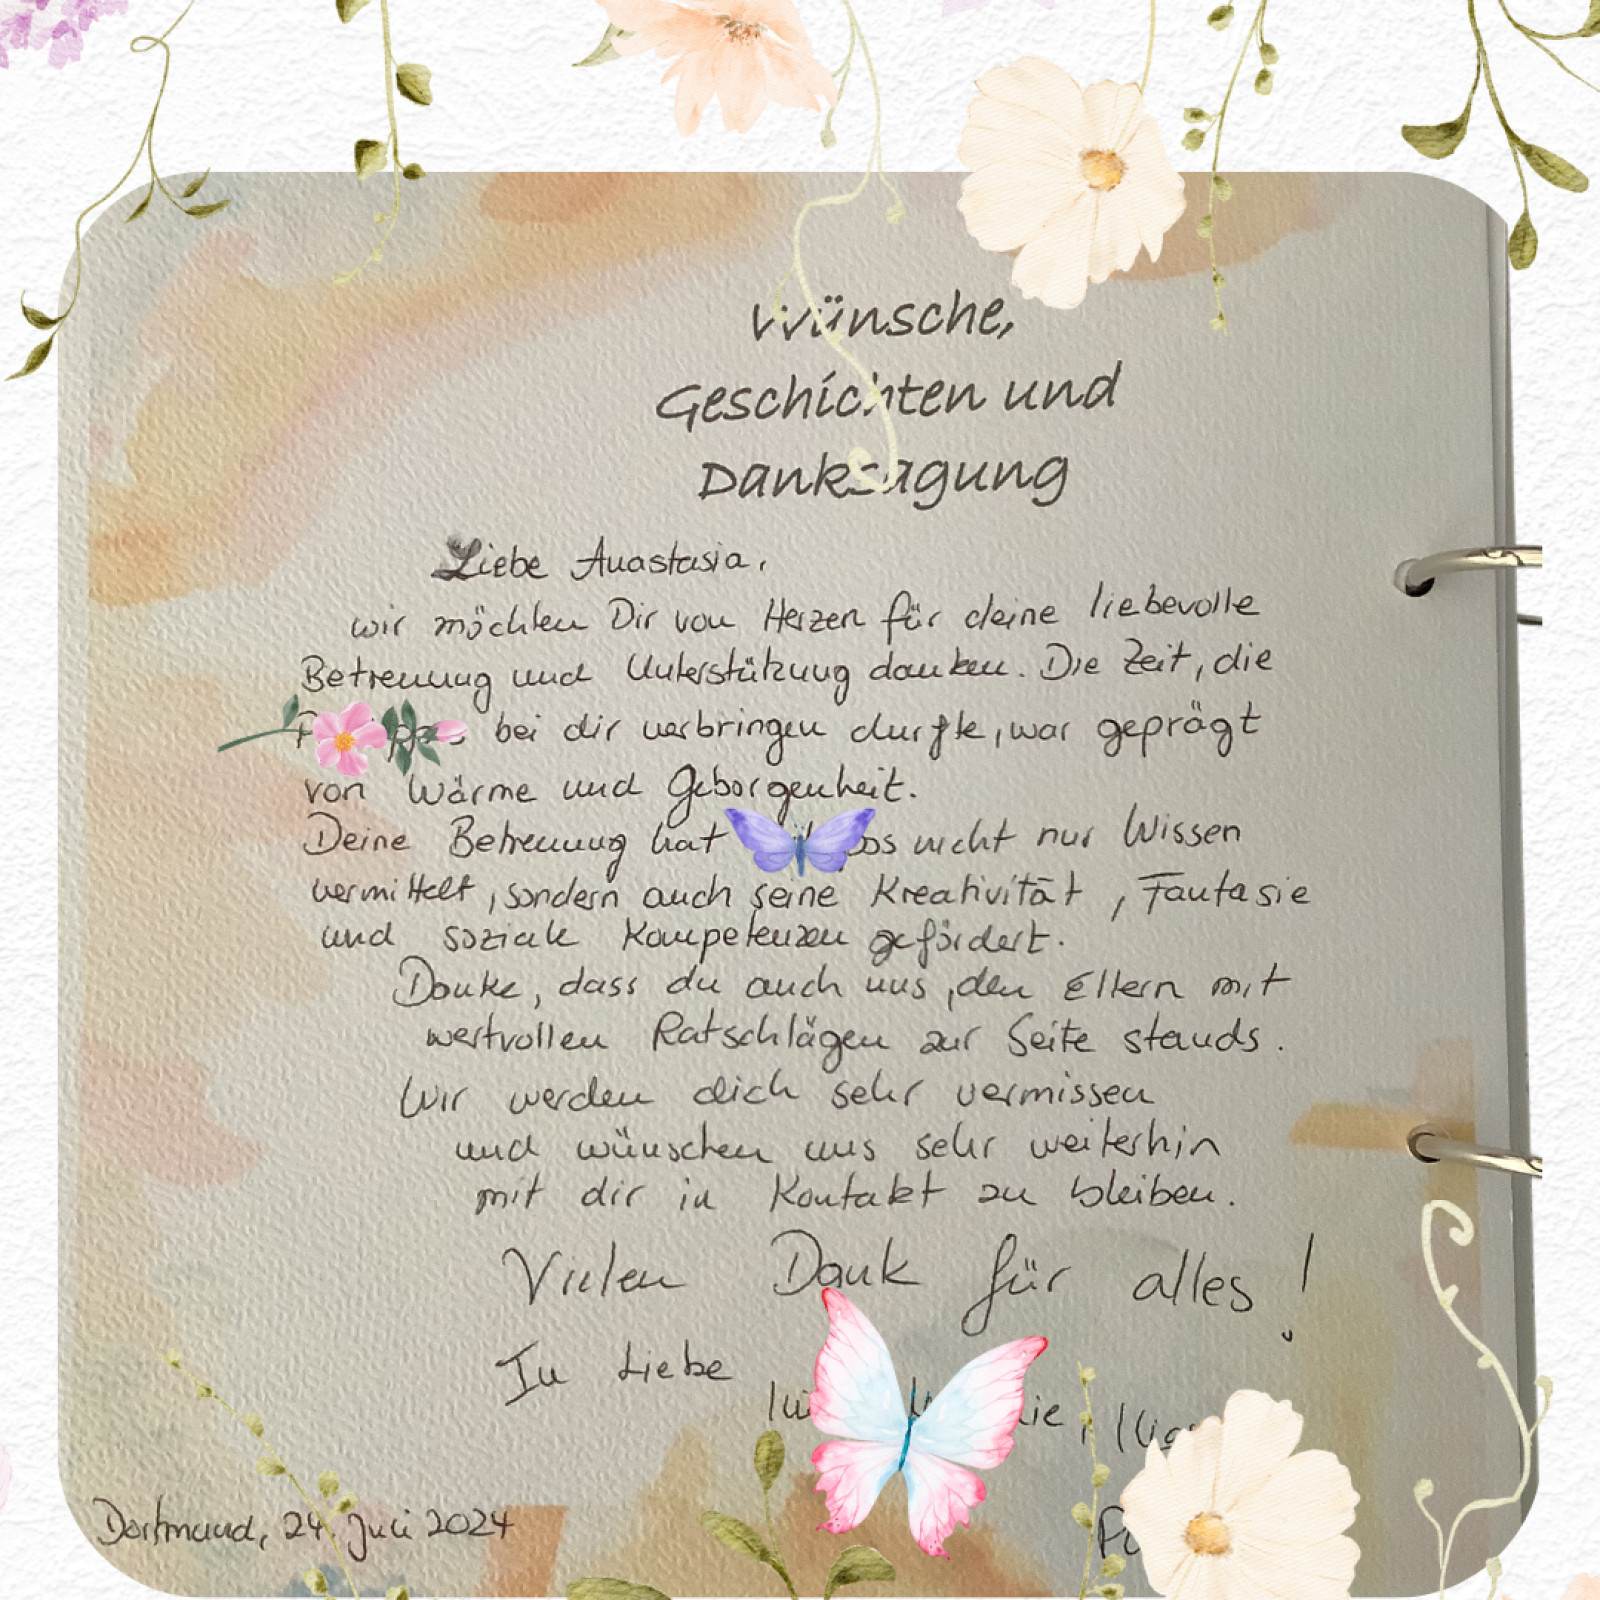 Wünsche,
Geschichten und
Danksagung
Liebe Anastasia,
wir möchten Dir von Herzen für deine liebevolle
Betreuung und Unterstützung danken. Die Zeit, die
bei dir verbringen durfte, war geprägt
von Wärme und Geborgenheit.
Deine Betreuung hat nicht nur Wissen
vermittelt, sondern auch seine Kreativität, Fantasie
und soziale Kompetenzen gefördert.
Danke, dass du auch uns, den Eltern mit
wertvollen Ratschlägen zur Seite stands.
Wir werden dich sehr vermissen
und wünschen uns sehr weiterhin
mit dir in Kontakt zu bleiben.
Vielen Dank für alles!
In Liebe
Dortmund, 24 Juli 2024